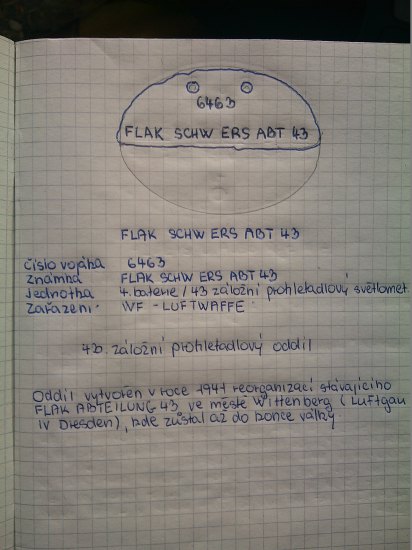 6463
FLAK SCHW ERS ABT 43
FLAK SCHW ERS ABT 43
číslo vojáka 6463
Známka FLAK SCHW ERS ABT 43
Jednotka 4. baterie / 43 záložní prohledadlový světlomet
Zařazení: WF - LUFTWAFFE
43. záložní prohledadlový oddíl
Oddíl vytvořen v roce 1941 reorganizací stávajícího
FLAK ABTEILUNG 43 ve městě Wittenberg (Luftgau
IV Dresden), kde zůstal až do konce války